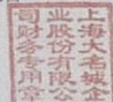 上海大名城企
业股份有限公
司财务专用章